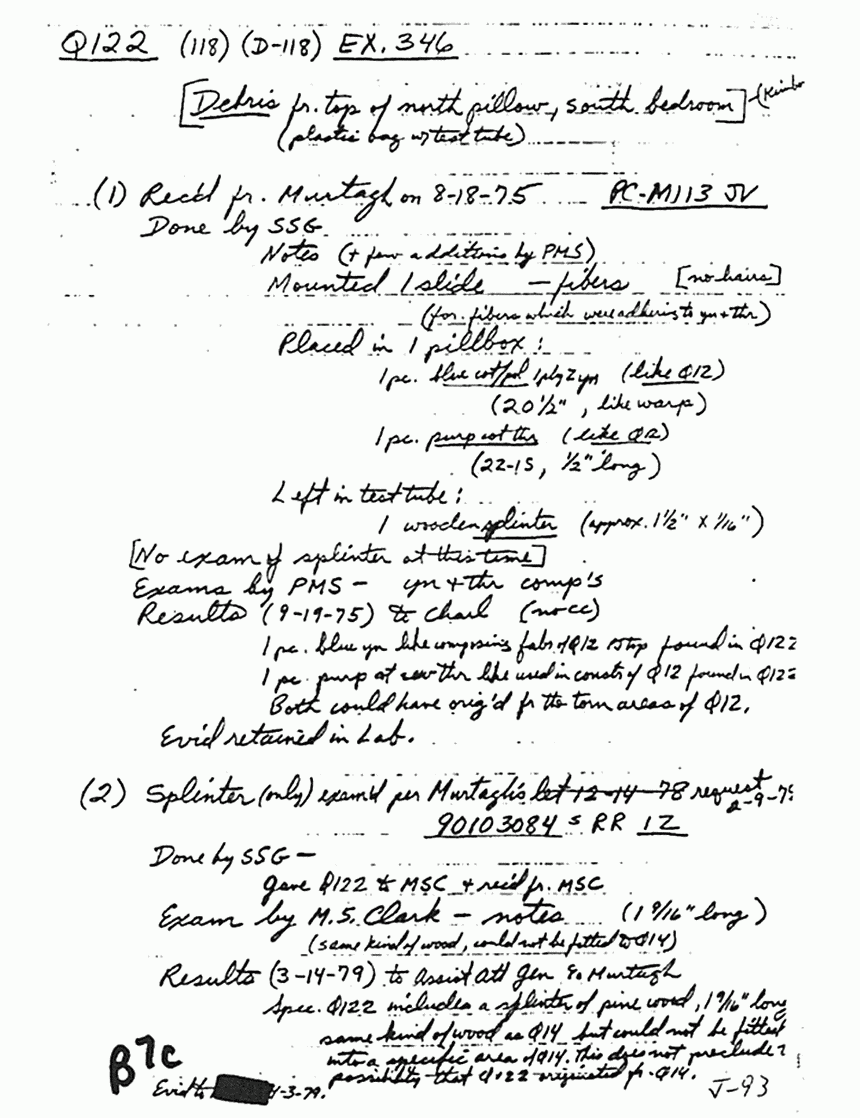 Q122 (118) (D-118) EX. 346
[Debris fr. top of north pillow, south bedroom]
(plastic bag w/ test tube)
(1) Rec'd fr. Murtagh on 8-18-75 PC-M113 JV
Done by SSG
Notes (+ few additions by PMS)
Mounted 1 slide — fibers [no hairs]
(for. fibers which were adhering to yn + thr)
Placed in 1 pillbox:
1 pc. blue cot/pol 1 ply Z yn (like Q12)
(20 1/2", like warp)
1 pc. purp cot thr (like Q12)
(22-15, 1/2" long)
Left in test tube:
1 wooden splinter (approx. 1 1/2" X 1/16")
[No exam of splinter at this time]
Exams by PMS — yn + thr comp's
Results (9-19-75) to Charl (no cc)
1 pc. blue yn like composing fabr of Q12 found in Q122
1 pc. purp cot sew thr like used in constr of Q12 found in Q122
Both could have orig'd fr the torn areas of Q12.
Evid retained in Lab.
(2) Splinter (only) exam'd per Murtagh's let 12-14-78 request
2-9-79
90103084 S RR IZ
Done by SSG —
gave Q122 to MSC + rec'd fr. MSC
Exam by M.S. Clark — notes (1 9/16" long)
(same kind of wood, could not be fitted to Q14)
Results (3-14-79) to Assist Att Gen Murtagh
Spec. Q122 includes a splinter of pine wood, 1 9/16" long
same kind of wood as Q14 but could not be fitted
into a specific area of Q14. This does not preclude
possibility that Q122 originated fr. Q14.
B7C
Evid to 4-3-79.
J-93